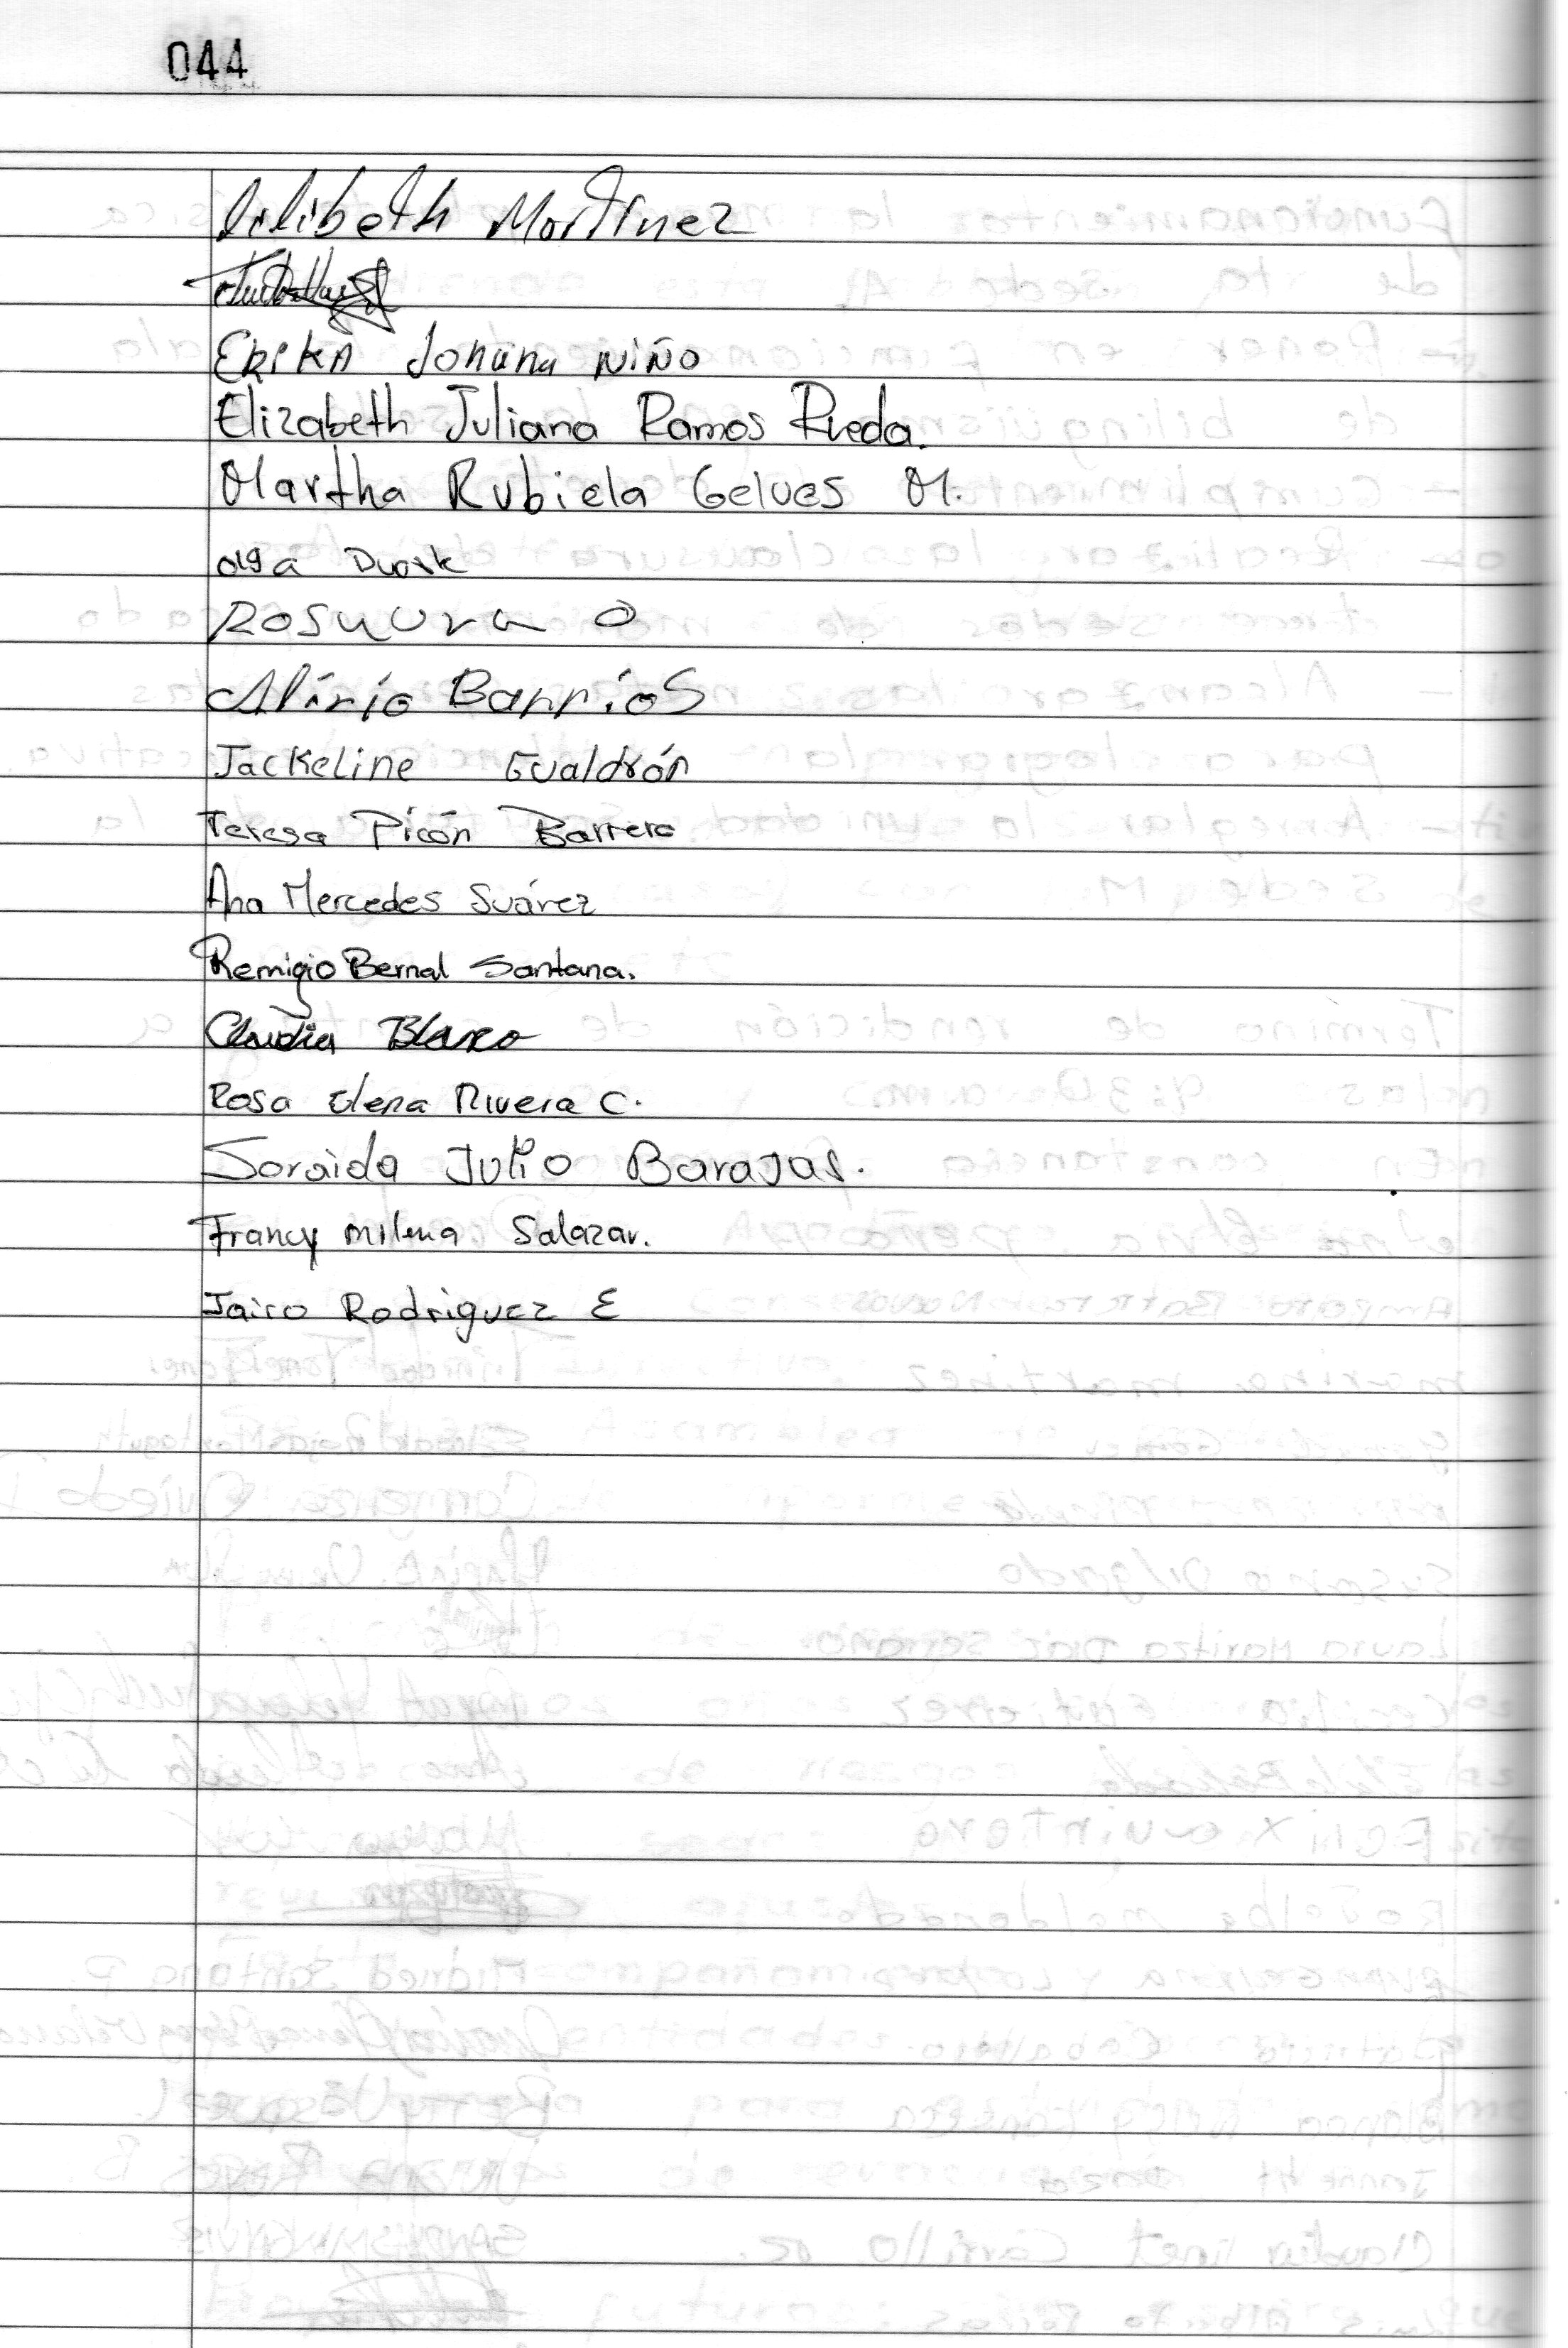 044
Lilibeth Martinez
Erika Johana Niño
Elizabeth Juliana Ramos Rueda.
Martha Rubiela Gelves M.
Olga Duarte
Rosaura O
Alirio Barrios
Jackeline Gualdrón
Teresa Picón Barrera
Ana Mercedes Suárez
Remigio Bernal Santana.
Claudia Blanco
Rosa Elena Rivera C.
Soraida Julio Barajas.
Francy Milena Salazar.
Jairo Rodriguez E